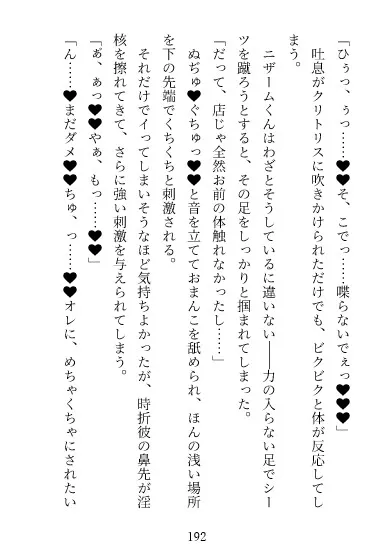 「ひぅっ、ぅっ……♥♥そ、こでっ……喋らないでぇっ♥♥♥」
　吐息がクリトリスに吹きかけられただけでも、ビクビクと体が反応してし
まう。
　ニザームくんはわざとそうしているに違いない――力の入らない足でシー
ツを蹴ろうとすると、その足をしっかりと掴まれてしまった。
「だって、店じゃ全然お前の体触れなかったし……」
　ぬぢゅ♥ぐちゅっ♥♥と音を立てておまんこを舐められ、ほんの浅い場所
を下の先端でくちくちと刺激される。
　それだけでイってしまいそうなほど気持ちよかったが、時折彼の鼻先が淫
核を擦れてきて、さらに強い刺激を与えられてしまう。
「あ゛、ぁっ♥♥やぁ、もっ……♥♥」
「ん……♥まだダメ♥♥ちゅ、っ……♥♥オレに、めちゃくちゃにされたい
192